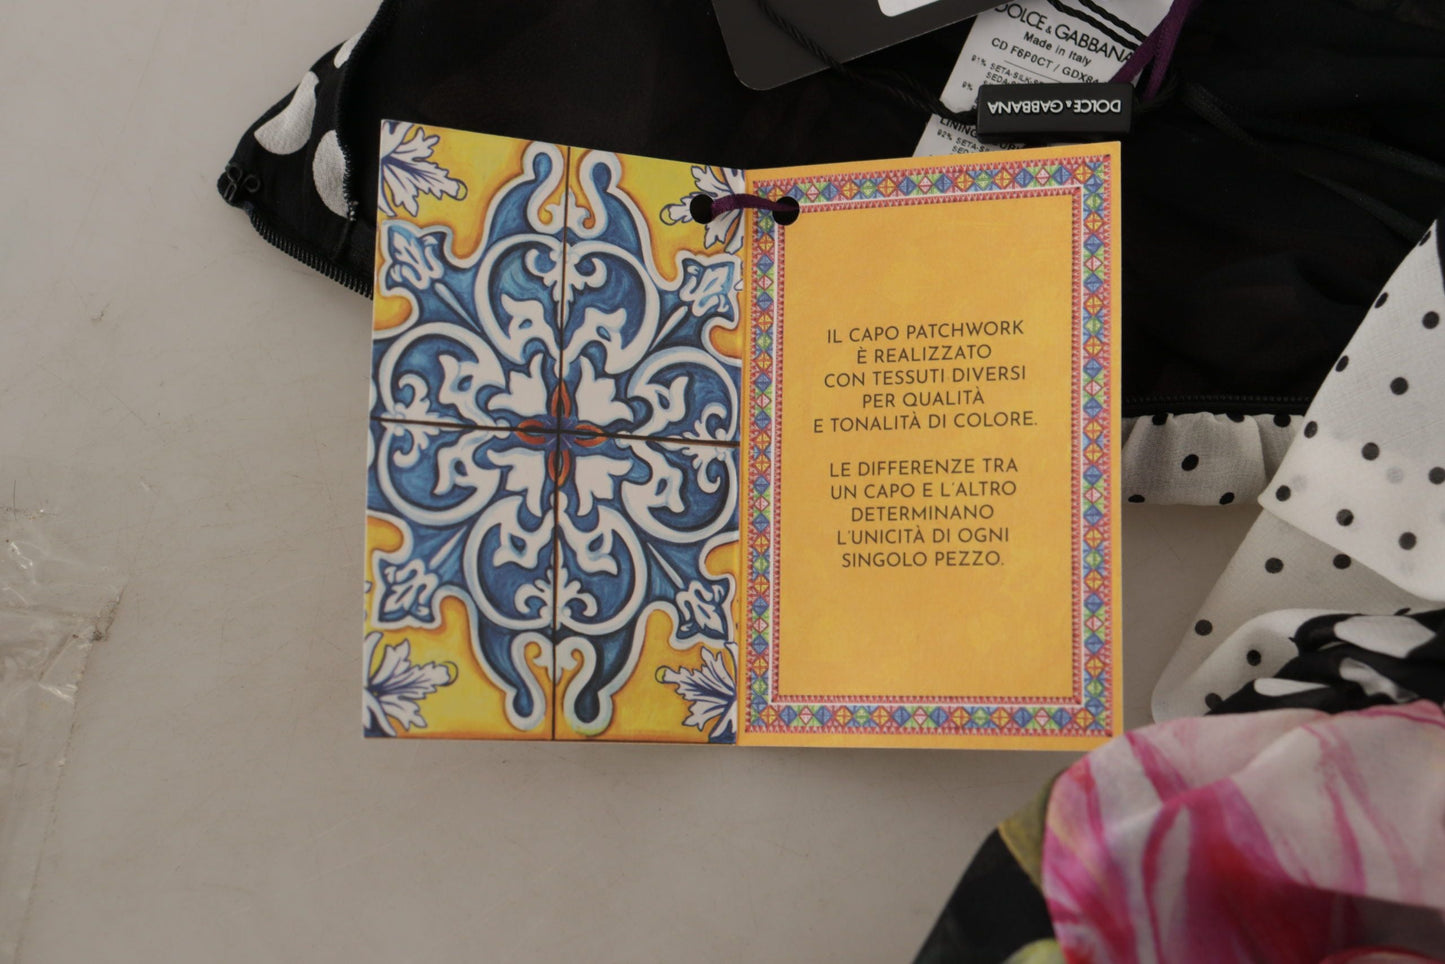 DOLCE & GABBANA
Made in Italy
CD F6P0CT / GDX8
91% SETA-SILK-S
9%
LINING
92% SETA-S
DOLCE & GABBANA
IL CAPO PATCHWORK
È REALIZZATO
CON TESSUTI DIVERSI
PER QUALITÀ
E TONALITÀ DI COLORE.
LE DIFFERENZE TRA
UN CAPO E L'ALTRO
DETERMINANO
L'UNICITÀ DI OGNI
SINGOLO PEZZO.